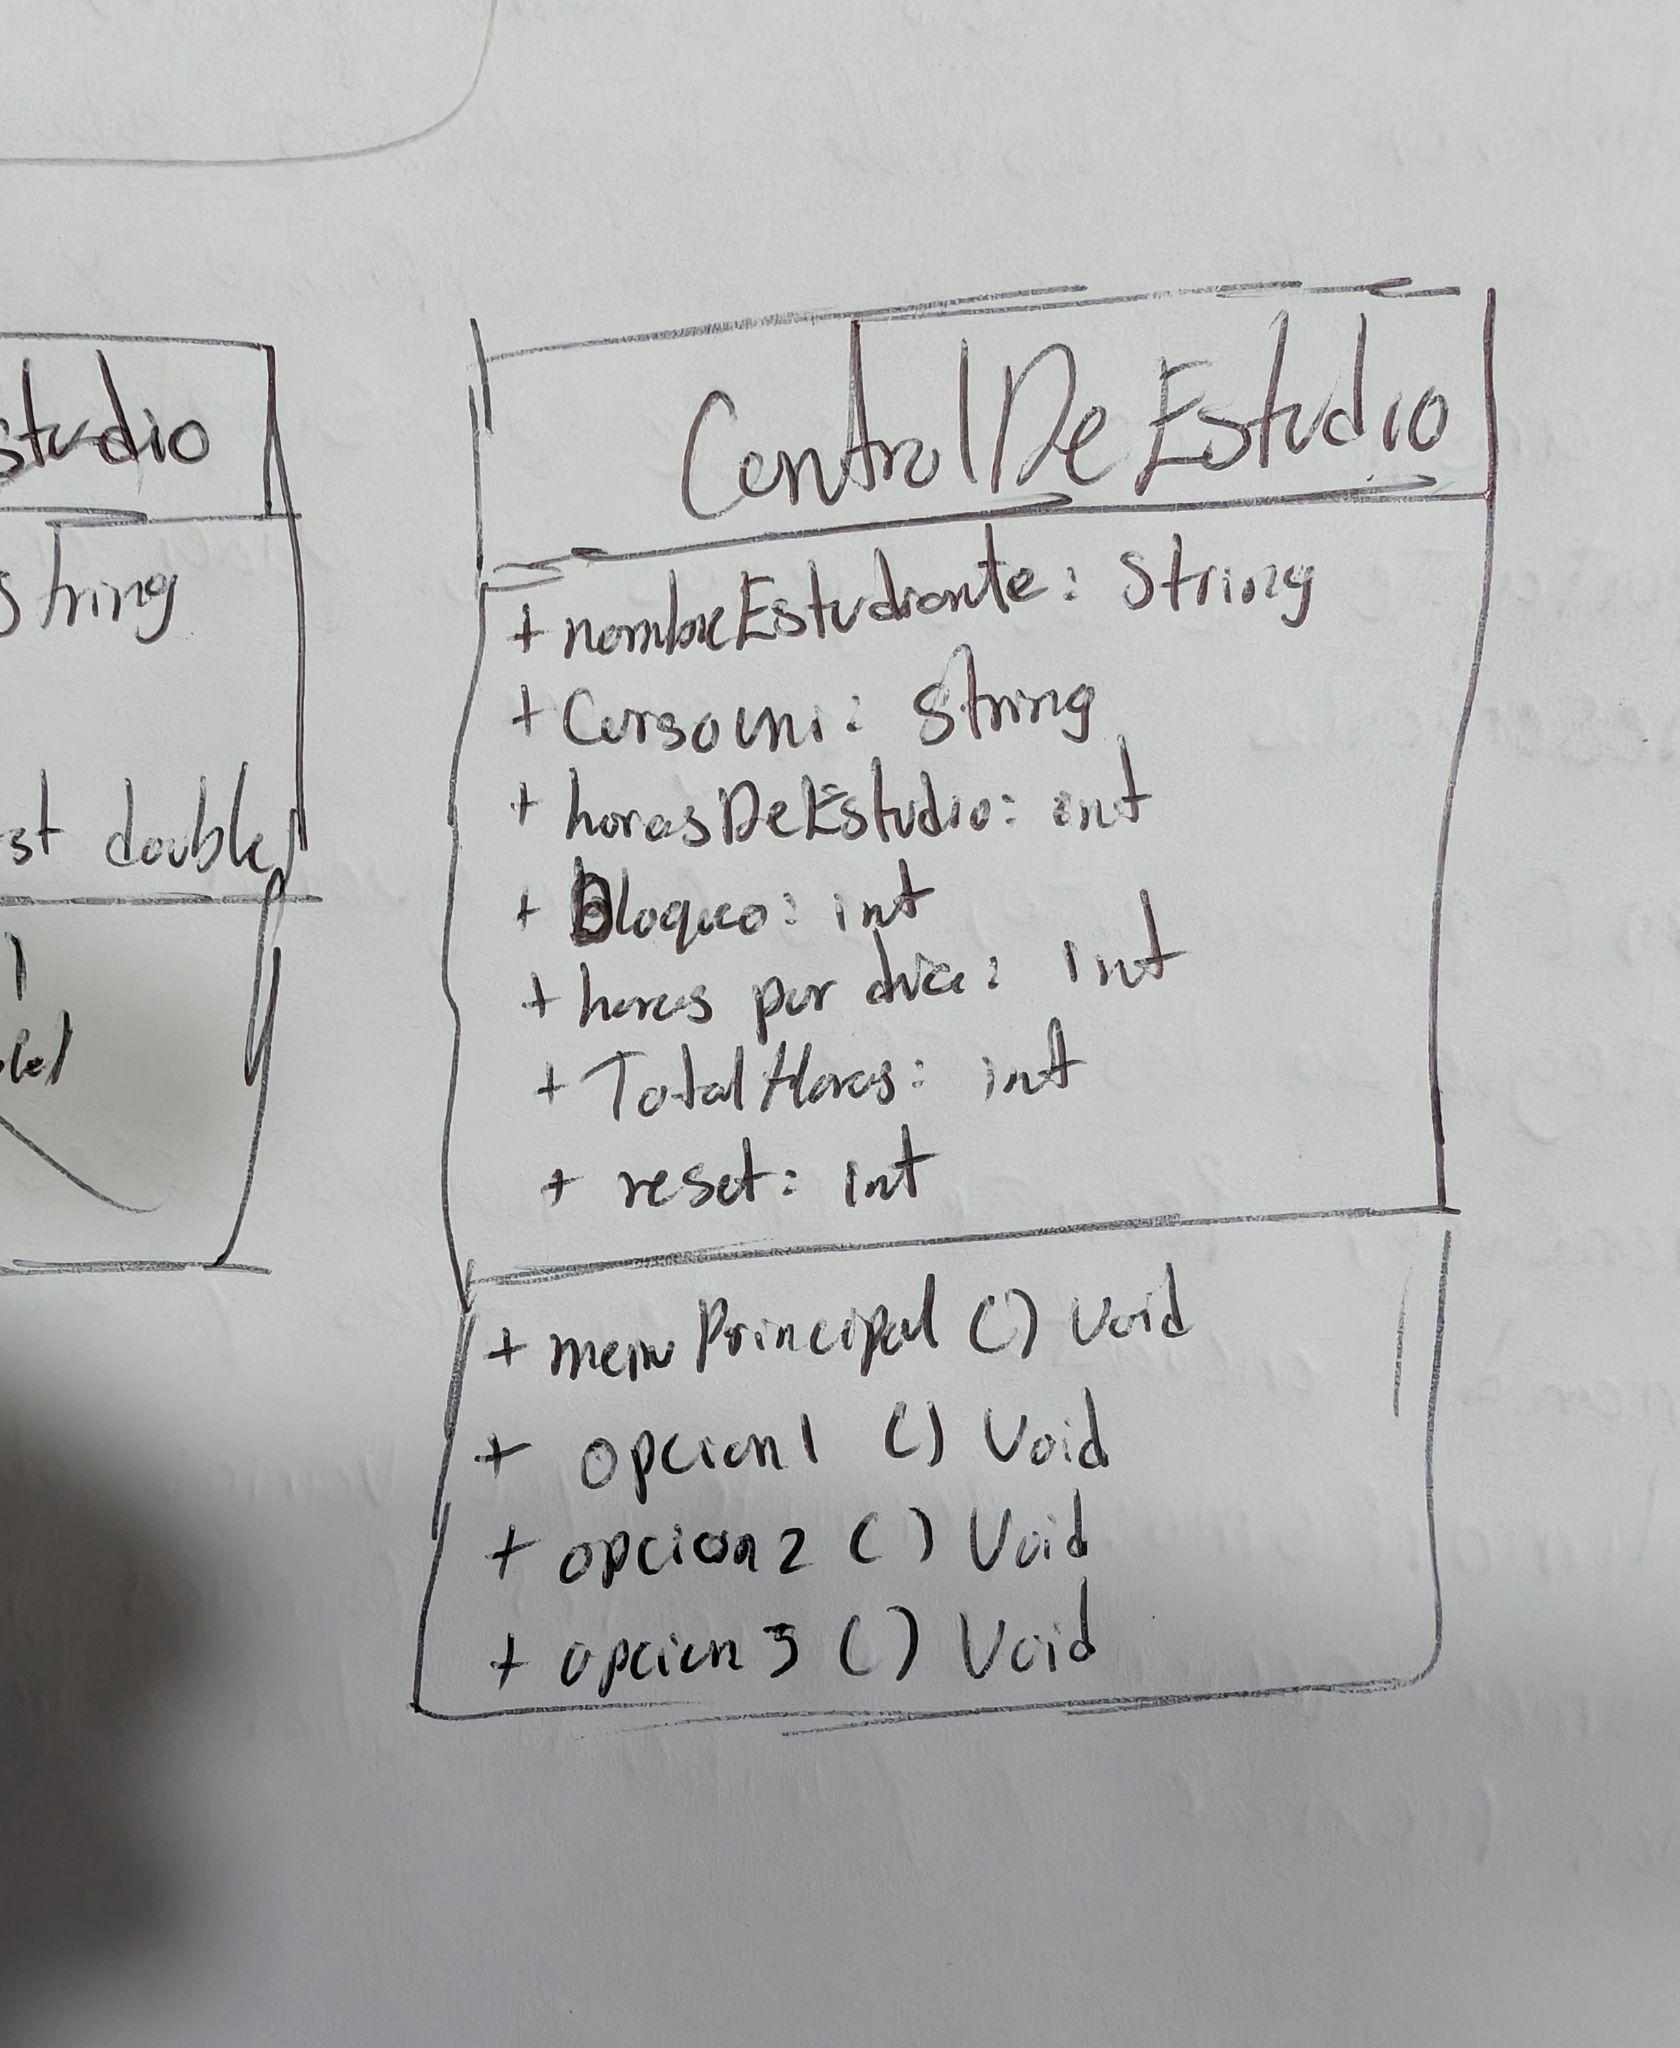 studio
string
st double
ControlDeEstudio
+ nombreEstudiante: String
+ Cursouni: String
+ horasDeEstudio: int
+ Bloqueo: int
+ horas por dia: int
+ TotalHoras: int
+ reset: int
+ menuPrincipal () Void
+ opcion1 () Void
+ opcion2 () Void
+ opcion3 () Void